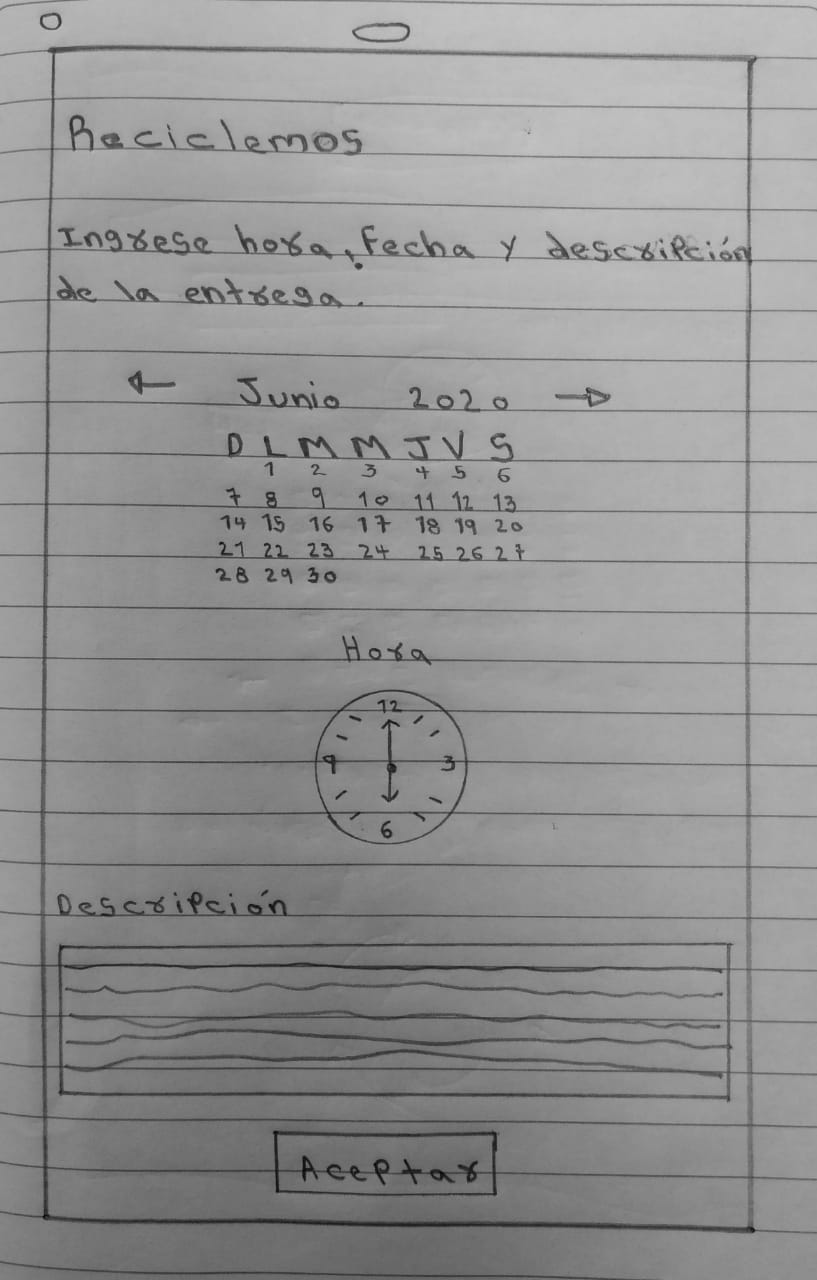 Reciclemos
Ingrese hora, fecha y descripción
de la entrega.
← Junio 2020 →
D L M M J V S
1 2 3 4 5 6
7 8 9 10 11 12 13
14 15 16 17 18 19 20
21 22 23 24 25 26 27
28 29 30
Hora
12
9 3
6
Descripción
Aceptar